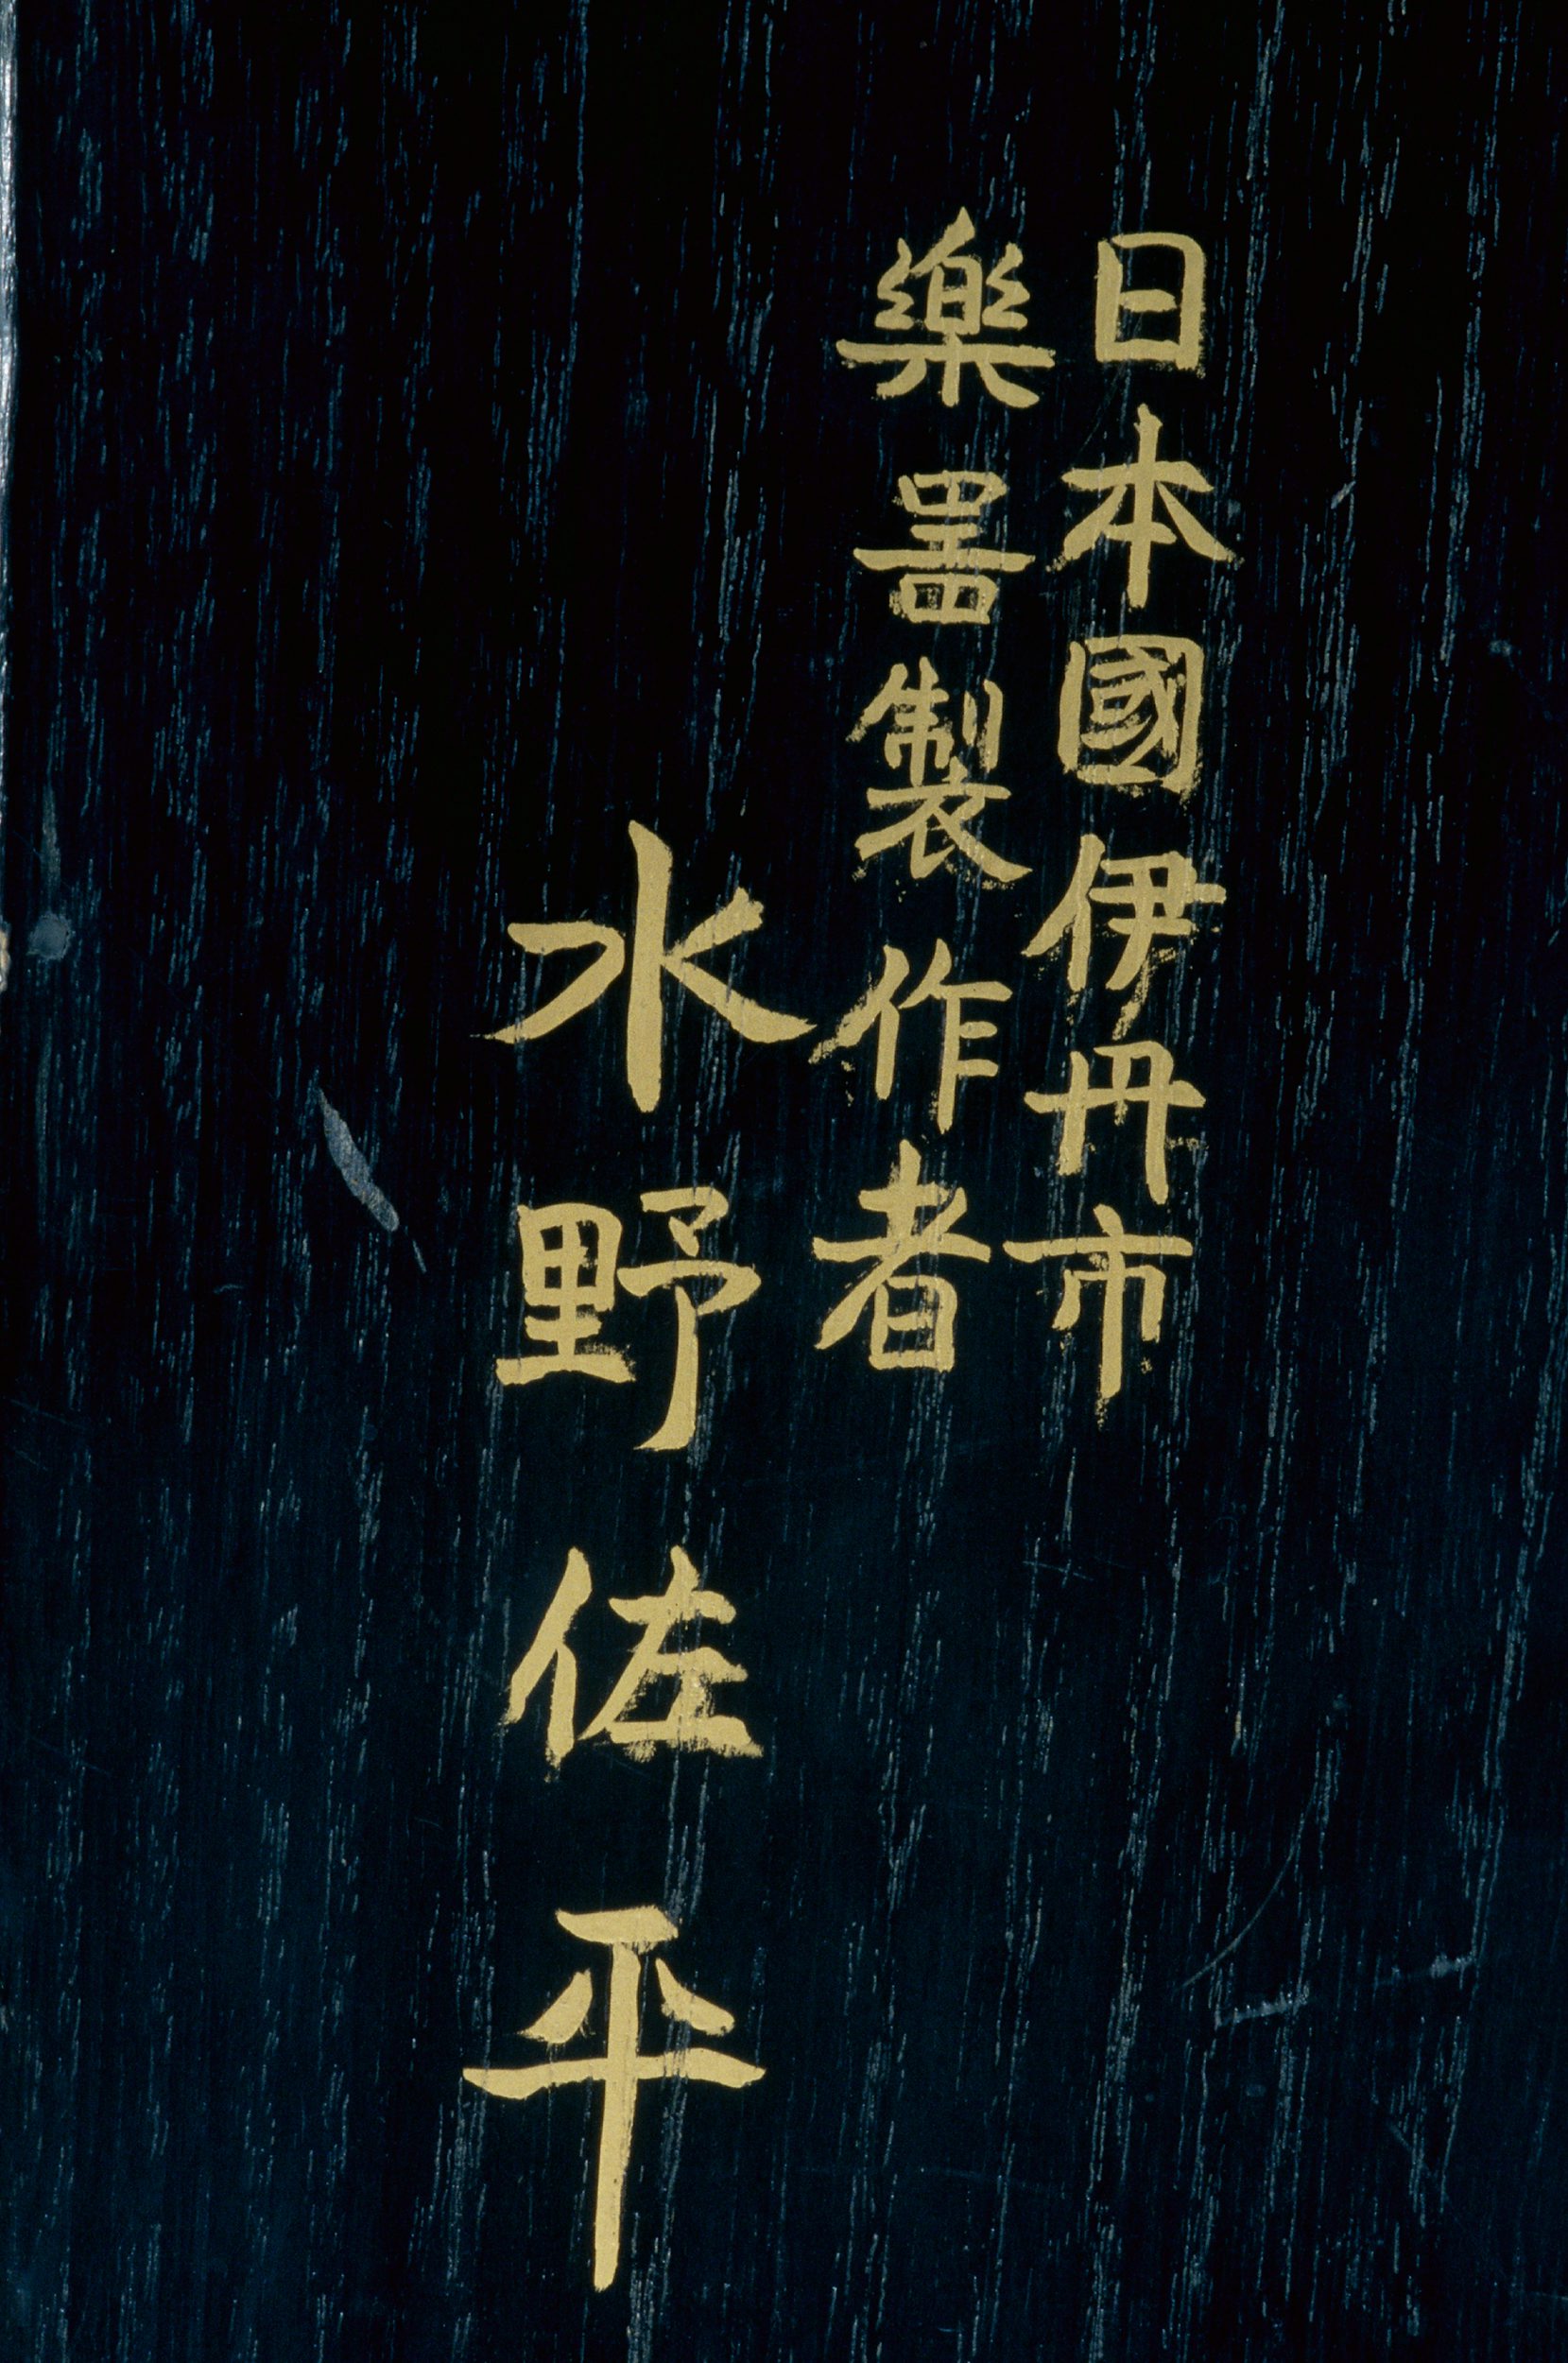 日本國伊丹市
樂器製作者
水野佐平